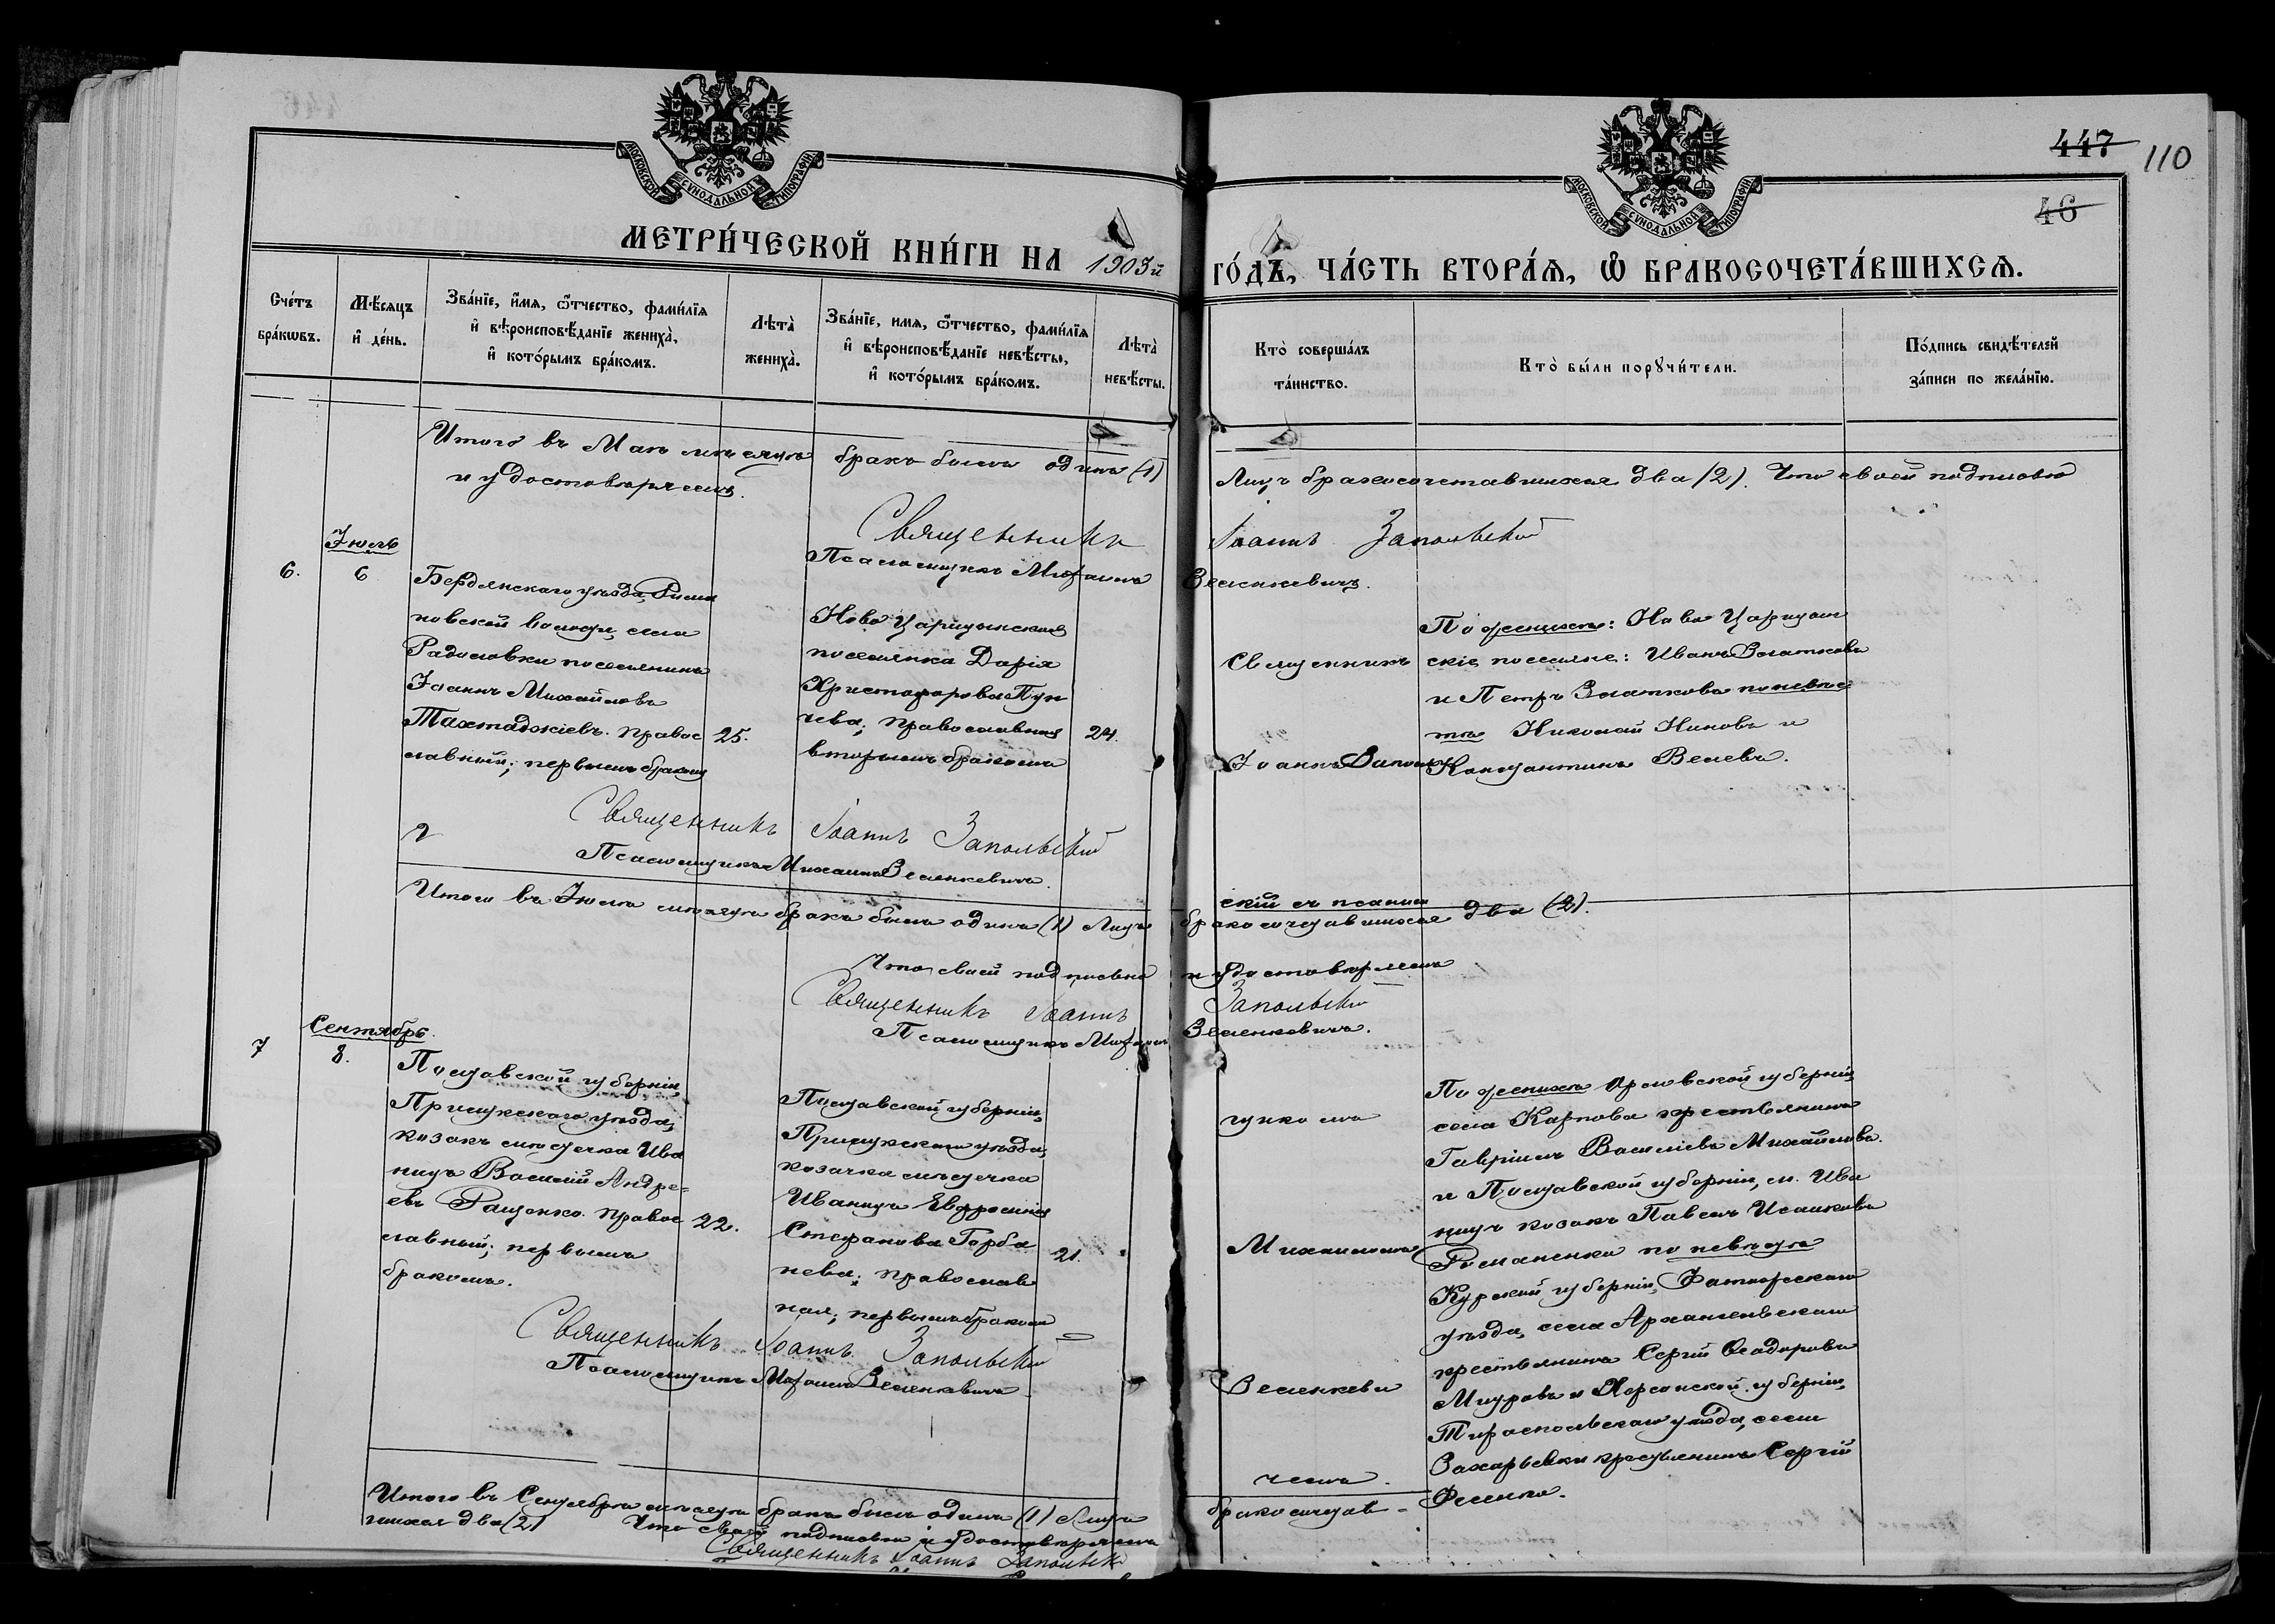 447
110
46
МОСКОВСКОЙ СѴНОДАЛЬНОЙ ТИПОГРАФІИ
МОСКОВСКОЙ СѴНОДАЛЬНОЙ ТИПОГРАФІИ
МЕТРИ́ЧЕСКОЙ КНИ́ГИ НА 1903й ГО́ДЪ, ЧА́СТЬ ВТОРА́Ѧ, Ѽ БРАКОСОЧЕТА́ВШИХСѦ.
Сче́тъ бра́кѡвъ.
Мѣ́сяцъ и҆ де́нь.
Зва́нїе, и҆́мя, ѻ҆́тчество, фами́лїя и҆ вѣроисповѣ́данїе жениха̀, и҆ кото́рымъ бра́комъ.
Лѣта̀ жениха̀.
Зва́нїе, имя, ѻ҆́тчество, фами́лїя и҆ вѣроисповѣ́данїе невѣ́сты, и҆ кото́рымъ бра́комъ.
Лѣта̀ невѣ́сты.
Кто̀ соверша́лъ та́инство.
Кто̀ бы́ли порꙋчи́тели.
По́дпись свидѣ́телей за́писи по жела́нїю.
Итого въ Маѣ мѣсяцѣ бракъ былъ одинъ (1) Лицъ бракосочетавшихся два (2). Что своей подписью
и удостовѣряемъ.
Священникъ Іоаннъ Запольскій
Псаломщикъ Михаилъ Зеленкевичъ.
Іюль
6.
6
Бердянскаго уѣзда,
новской волости, села
Радоловки поселянинъ
Іоаннъ Михайловъ
Тахтаджіевъ. Правос
лавный; первымъ бракомъ
25.
Ново Царицынская
поселянка Дарія
Христофорова Пун
чева; православная
вторымъ бракомъ
24.
Священникъ
Іоаннъ Запольс
кій съ псалом
По женихѣ: Ново Царицын
скіе поселяне: Иванъ Златковъ
и Петръ Златковъ по невѣс
тѣ Николай Ниновъ и
Константинъ Велевъ.
Священникъ Іоаннъ Запольскій
Псаломщикъ Михаилъ Зеленкевичъ.
Итого въ Іюлѣ мѣсяцѣ бракъ былъ одинъ (1) Лицъ бракосочетавшихся два (2).
Что своей подписью и удостовѣряемъ
Священникъ Іоаннъ Запольскій
Псаломщикъ Михаилъ Зеленкевичъ.
Сентябрь.
7
8.
Полтавской губерніи,
Прилукскаго уѣзда,
козакъ мѣстечка Ива
ницъ Василій Андре=
евъ Ращенко. Правос
лавный; первымъ
бракомъ.
22.
Полтавской губерніи,
Прилукскаго уѣзда,
козачка мѣстечка
Иваницъ Евфросинія
Стефанова Горба
нева; православ
ная; первымъ бракомъ
21.
щикомъ
Михаиломъ
Зеленкеви
чемъ.
По женихѣ Орловской губерніи,
села Карпова крестьянинъ
Гавріилъ Василіевъ Михайловъ.
и Полтавской губерніи, м. Ива
ницъ козакъ Павелъ Исааковъ
Романенко по невѣстѣ
Курской губерніи, Фатежскаго
уѣзда, села Архангельскаго
крестьянинъ Сергій Ѳеодоровъ
и Херсонской губерніи,
Тираспольскаго уѣзда, села
Захарьевки крестьянинъ Сергій
Фесенко.
Священникъ Іоаннъ Запольскій
Псаломщикъ Михаилъ Зеленкевичъ
Итого въ Сентябрѣ мѣсяцѣ бракъ былъ одинъ (1) Лицъ бракосочетав-
шихся два (2) Что своей подписью и удостовѣряемъ
Священникъ Іоаннъ Запольскій